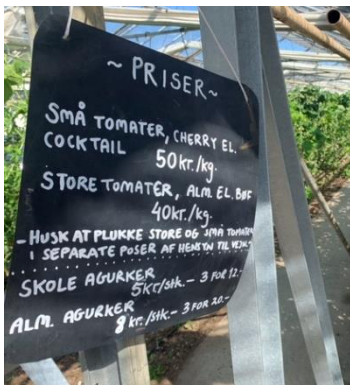 ~ PRISER ~
SMÅ TOMATER, CHERRY EL.
COCKTAIL
50kr./kg.
STORE TOMATER, ALM EL. BØF
40kr./kg.
- HUSK AT PLUKKE STORE OG SMÅ TOMATER
I SEPARATE POSER AF HENSYN TIL
SKOLE AGURKER
5kr/stk. - 3 FOR 12.-
ALM. AGURKER
8 kr./stk - 3 FOR 20.-